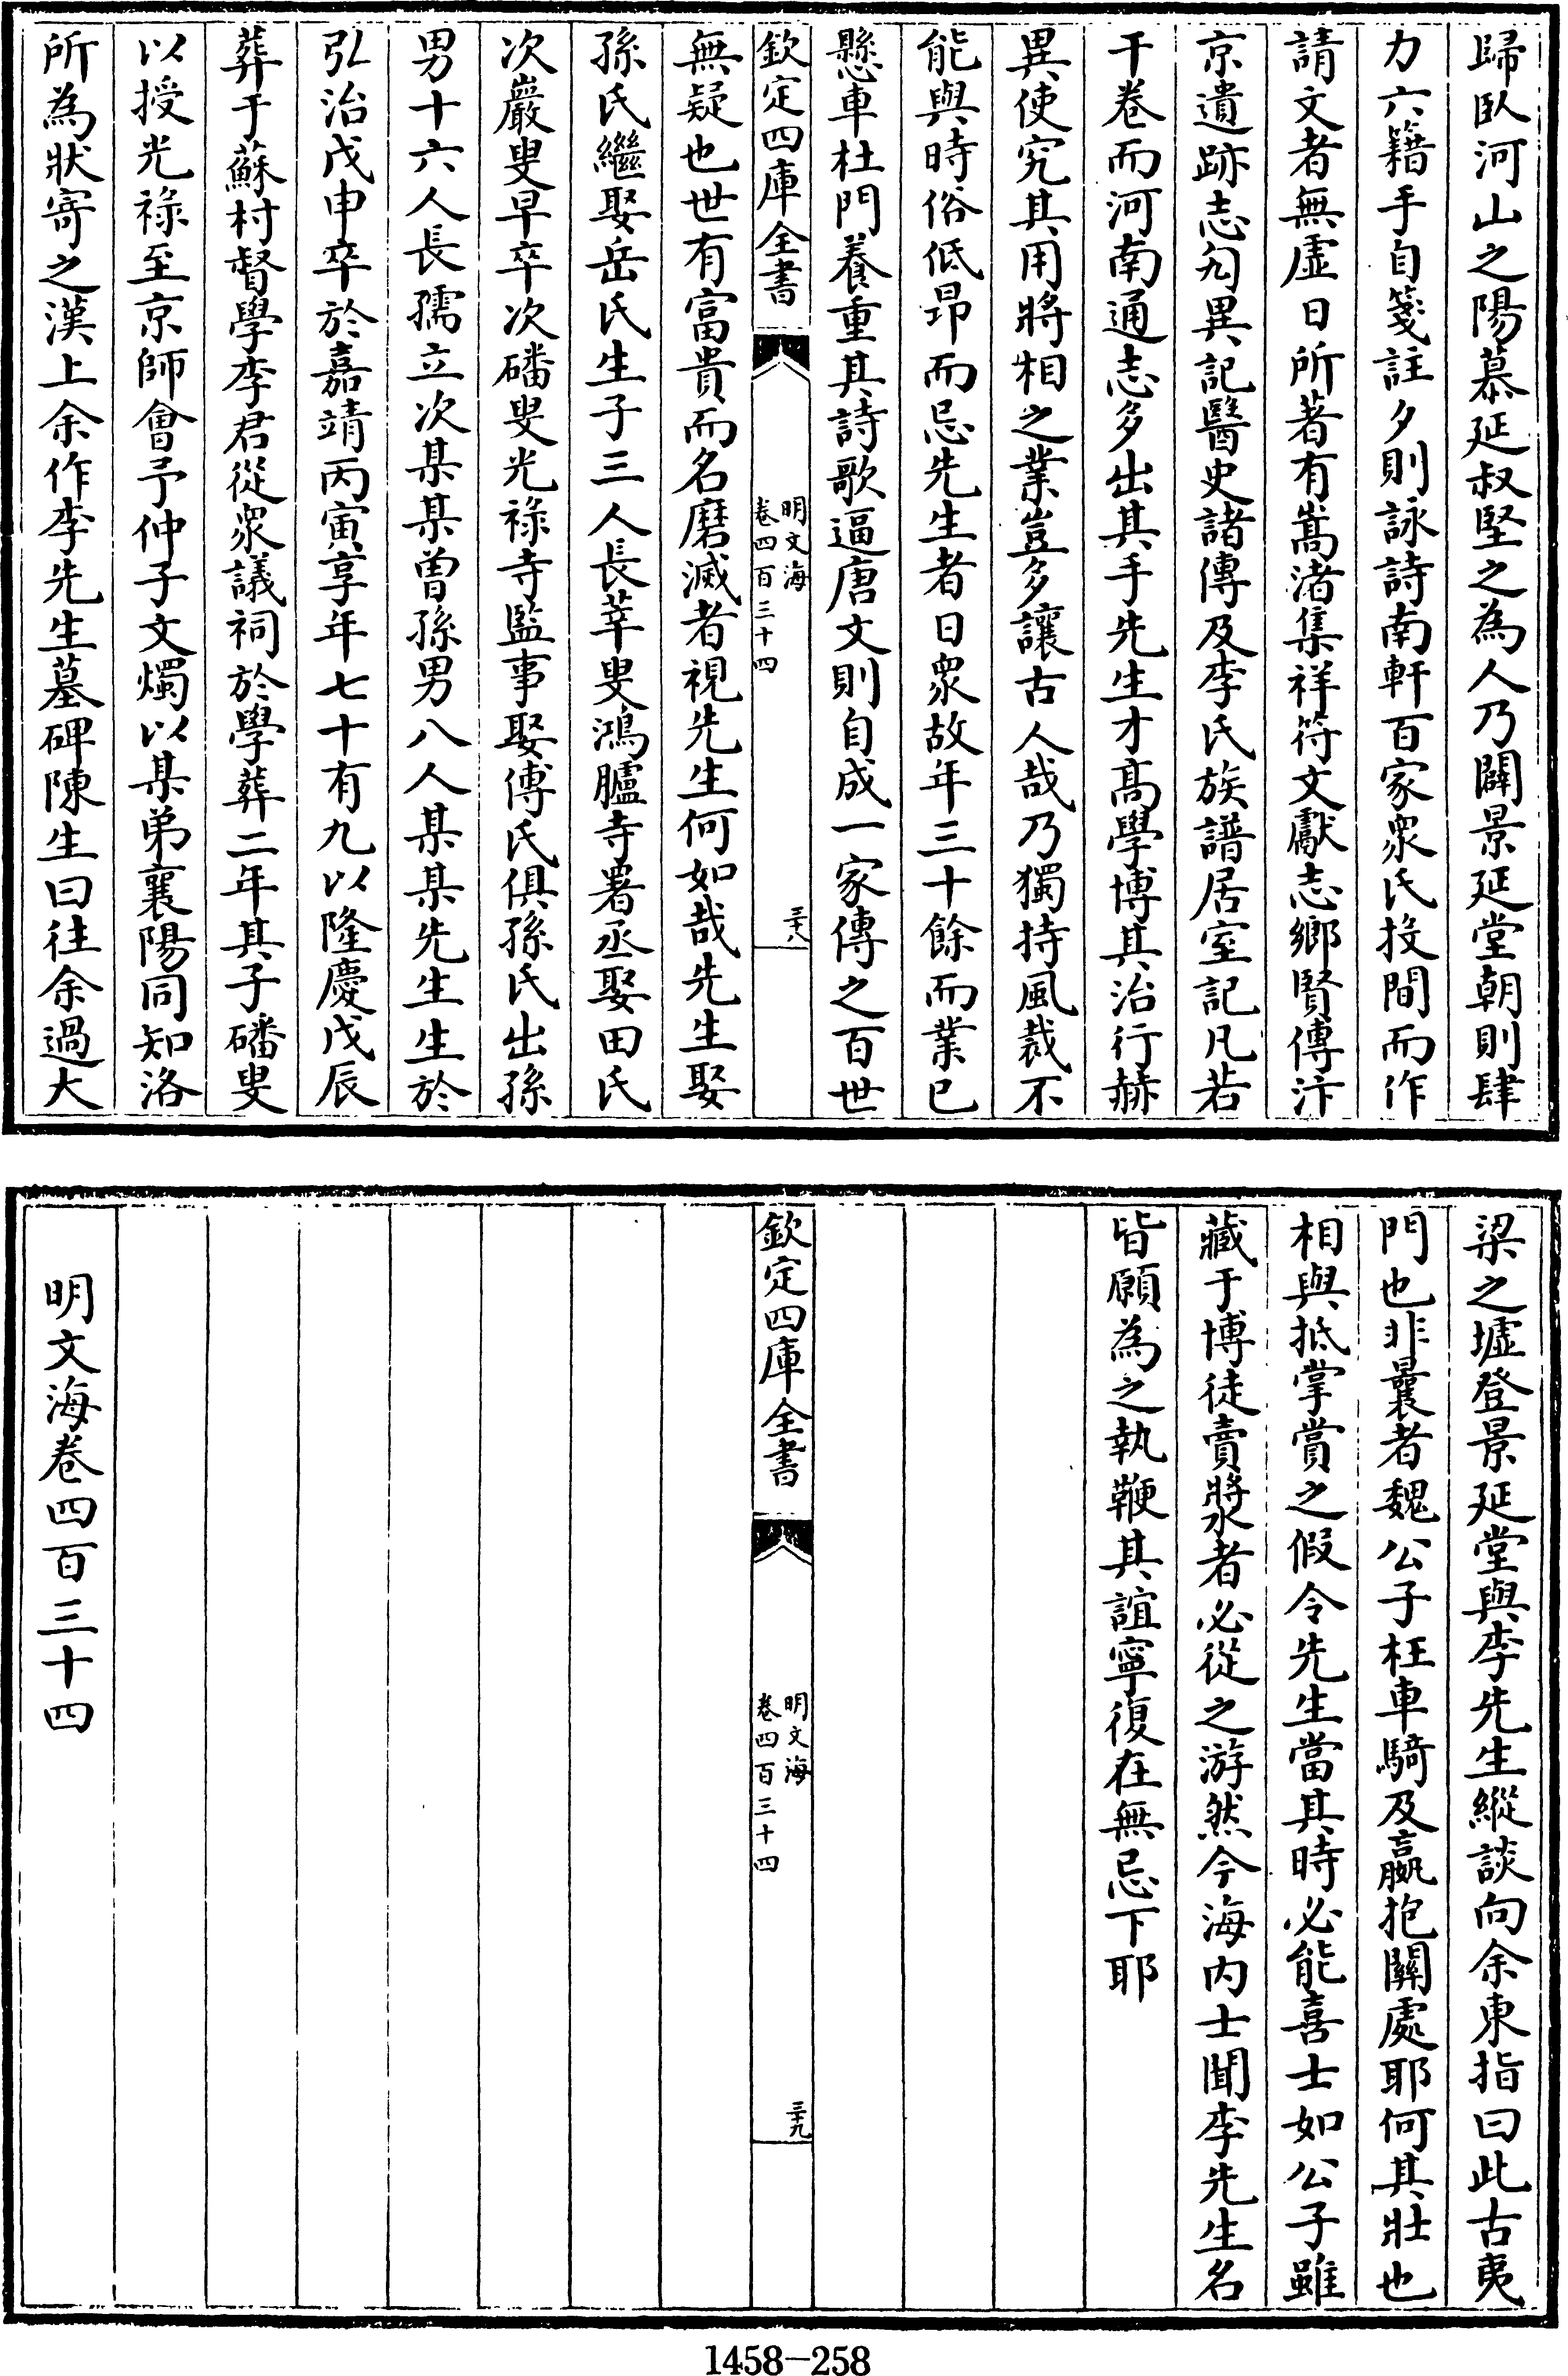 歸臥河山之陽慕延叔堅之為人乃闢景延堂朝則肆
力六籍手自箋註夕則詠詩南軒百家衆氏投間而作
請文者無虛日所著有嵩渚集祥符文獻志鄉賢傳汴
京遺跡志匆異記醫史諸傳及李氏族譜居室記凡若
干卷而河南通志多出其手先生才髙學博其治行赫
異使究其用將相之業豈多讓古人哉乃獨持風裁不
能與時俗低昂而忌先生者日衆故年三十餘而業已
懸車杜門養重其詩歌逼唐文則自成一家傳之百世
欽定四庫全書
明文海
卷四百三十四
三十八
無疑也世有富貴而名磨滅者視先生何如哉先生娶
孫氏繼娶岳氏生子三人長莘叟鴻臚寺署丞娶田氏
次巖叟早卒次磻叟光祿寺監事娶傅氏俱孫氏出孫
男十六人長孺立次某某曽孫男八人某某先生生於
弘治戊申卒於嘉靖丙寅享年七十有九以隆慶戊辰
葬于蘇村督學李君從衆議祠於學葬二年其子磻叟
以授光祿至京師會予仲子文燭以某弟襄陽同知洛
所為狀寄之漢上余作李先生墓碑陳生曰往余過大
梁之墟登景延堂與李先生縱談向余東指曰此古夷
門也非曩者魏公子枉車騎及嬴抱關處耶何其壯也
相與抵掌賞之假令先生當其時必能喜士如公子雖
藏于博徒賣漿者必從之游然今海内士聞李先生名
皆願為之執鞭其誼寧復在無忌下耶
欽定四庫全書
明文海
卷四百三十四
三十九
明文海卷四百三十四
1458-258